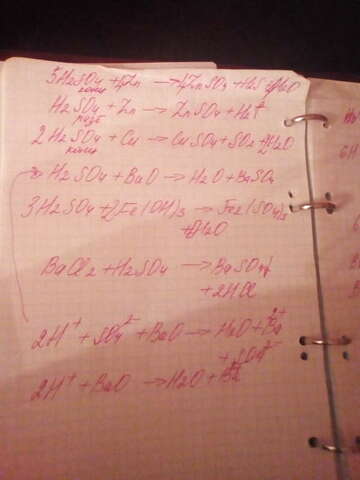 5H2SO4 + 4Zn → 4ZnSO4 + H2S + 4H2O
конц
H2SO4 + Zn → ZnSO4 + H2↑
разб
2H2SO4 + Cu → CuSO4 + SO2 + 2H2O
конц
H2SO4 + BaO → H2O + BaSO4
3H2SO4 + 2Fe(OH)3 → Fe2(SO4)3
+ 6H2O
BaCl2 + H2SO4 → BaSO4↓
+ 2HCl
2H+ + SO4 2- + BaO → H2O + Ba 2+
+ SO4 2-
2H+ + BaO → H2O + Ba 2+